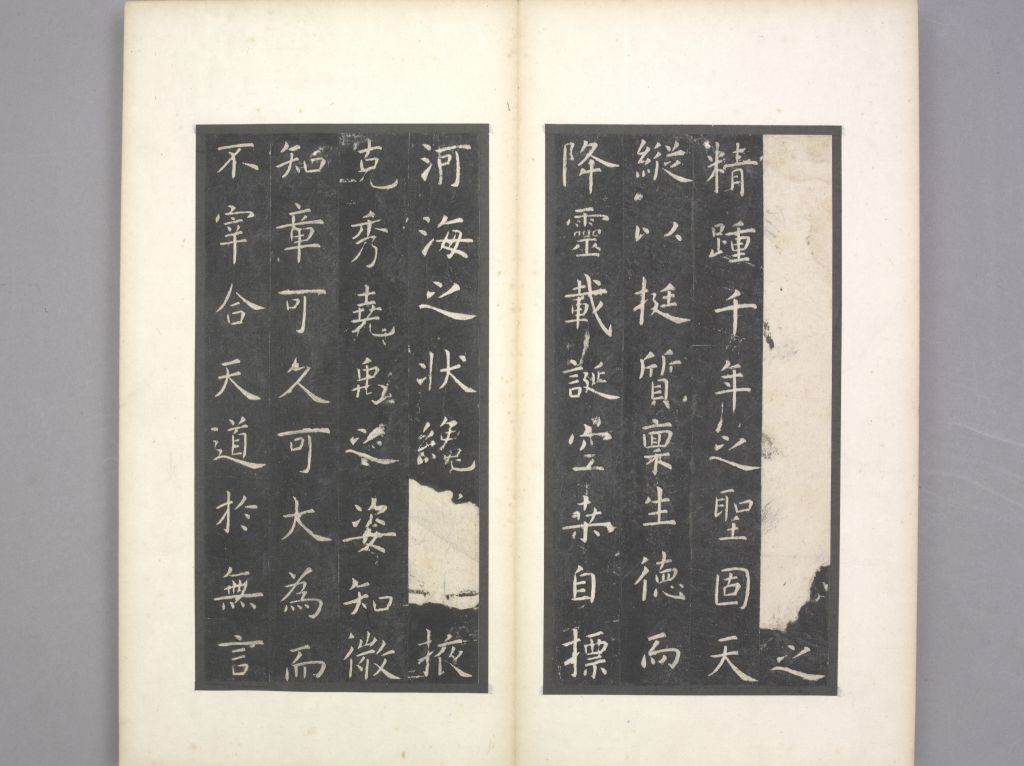 之
精踵千年之聖固天
縱以挺質稟生德而
降靈載誕空桒自摽
河海之狀纔掖
克秀堯禹之姿知微
知章可久可大為而
不宰合天道於無言